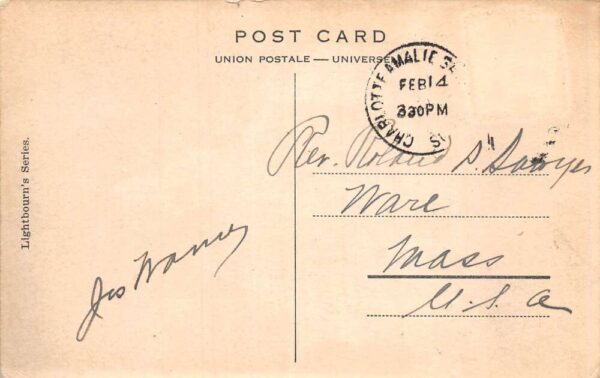 POST CARD
UNION POSTALE — UNIVERSE
CHARLOTTE AMALIE
FEB 14
330PM
IS
Lightbourn's Series.
Rev. Roland D. Sawyer
Ware
Mass
U.S.A
Jos